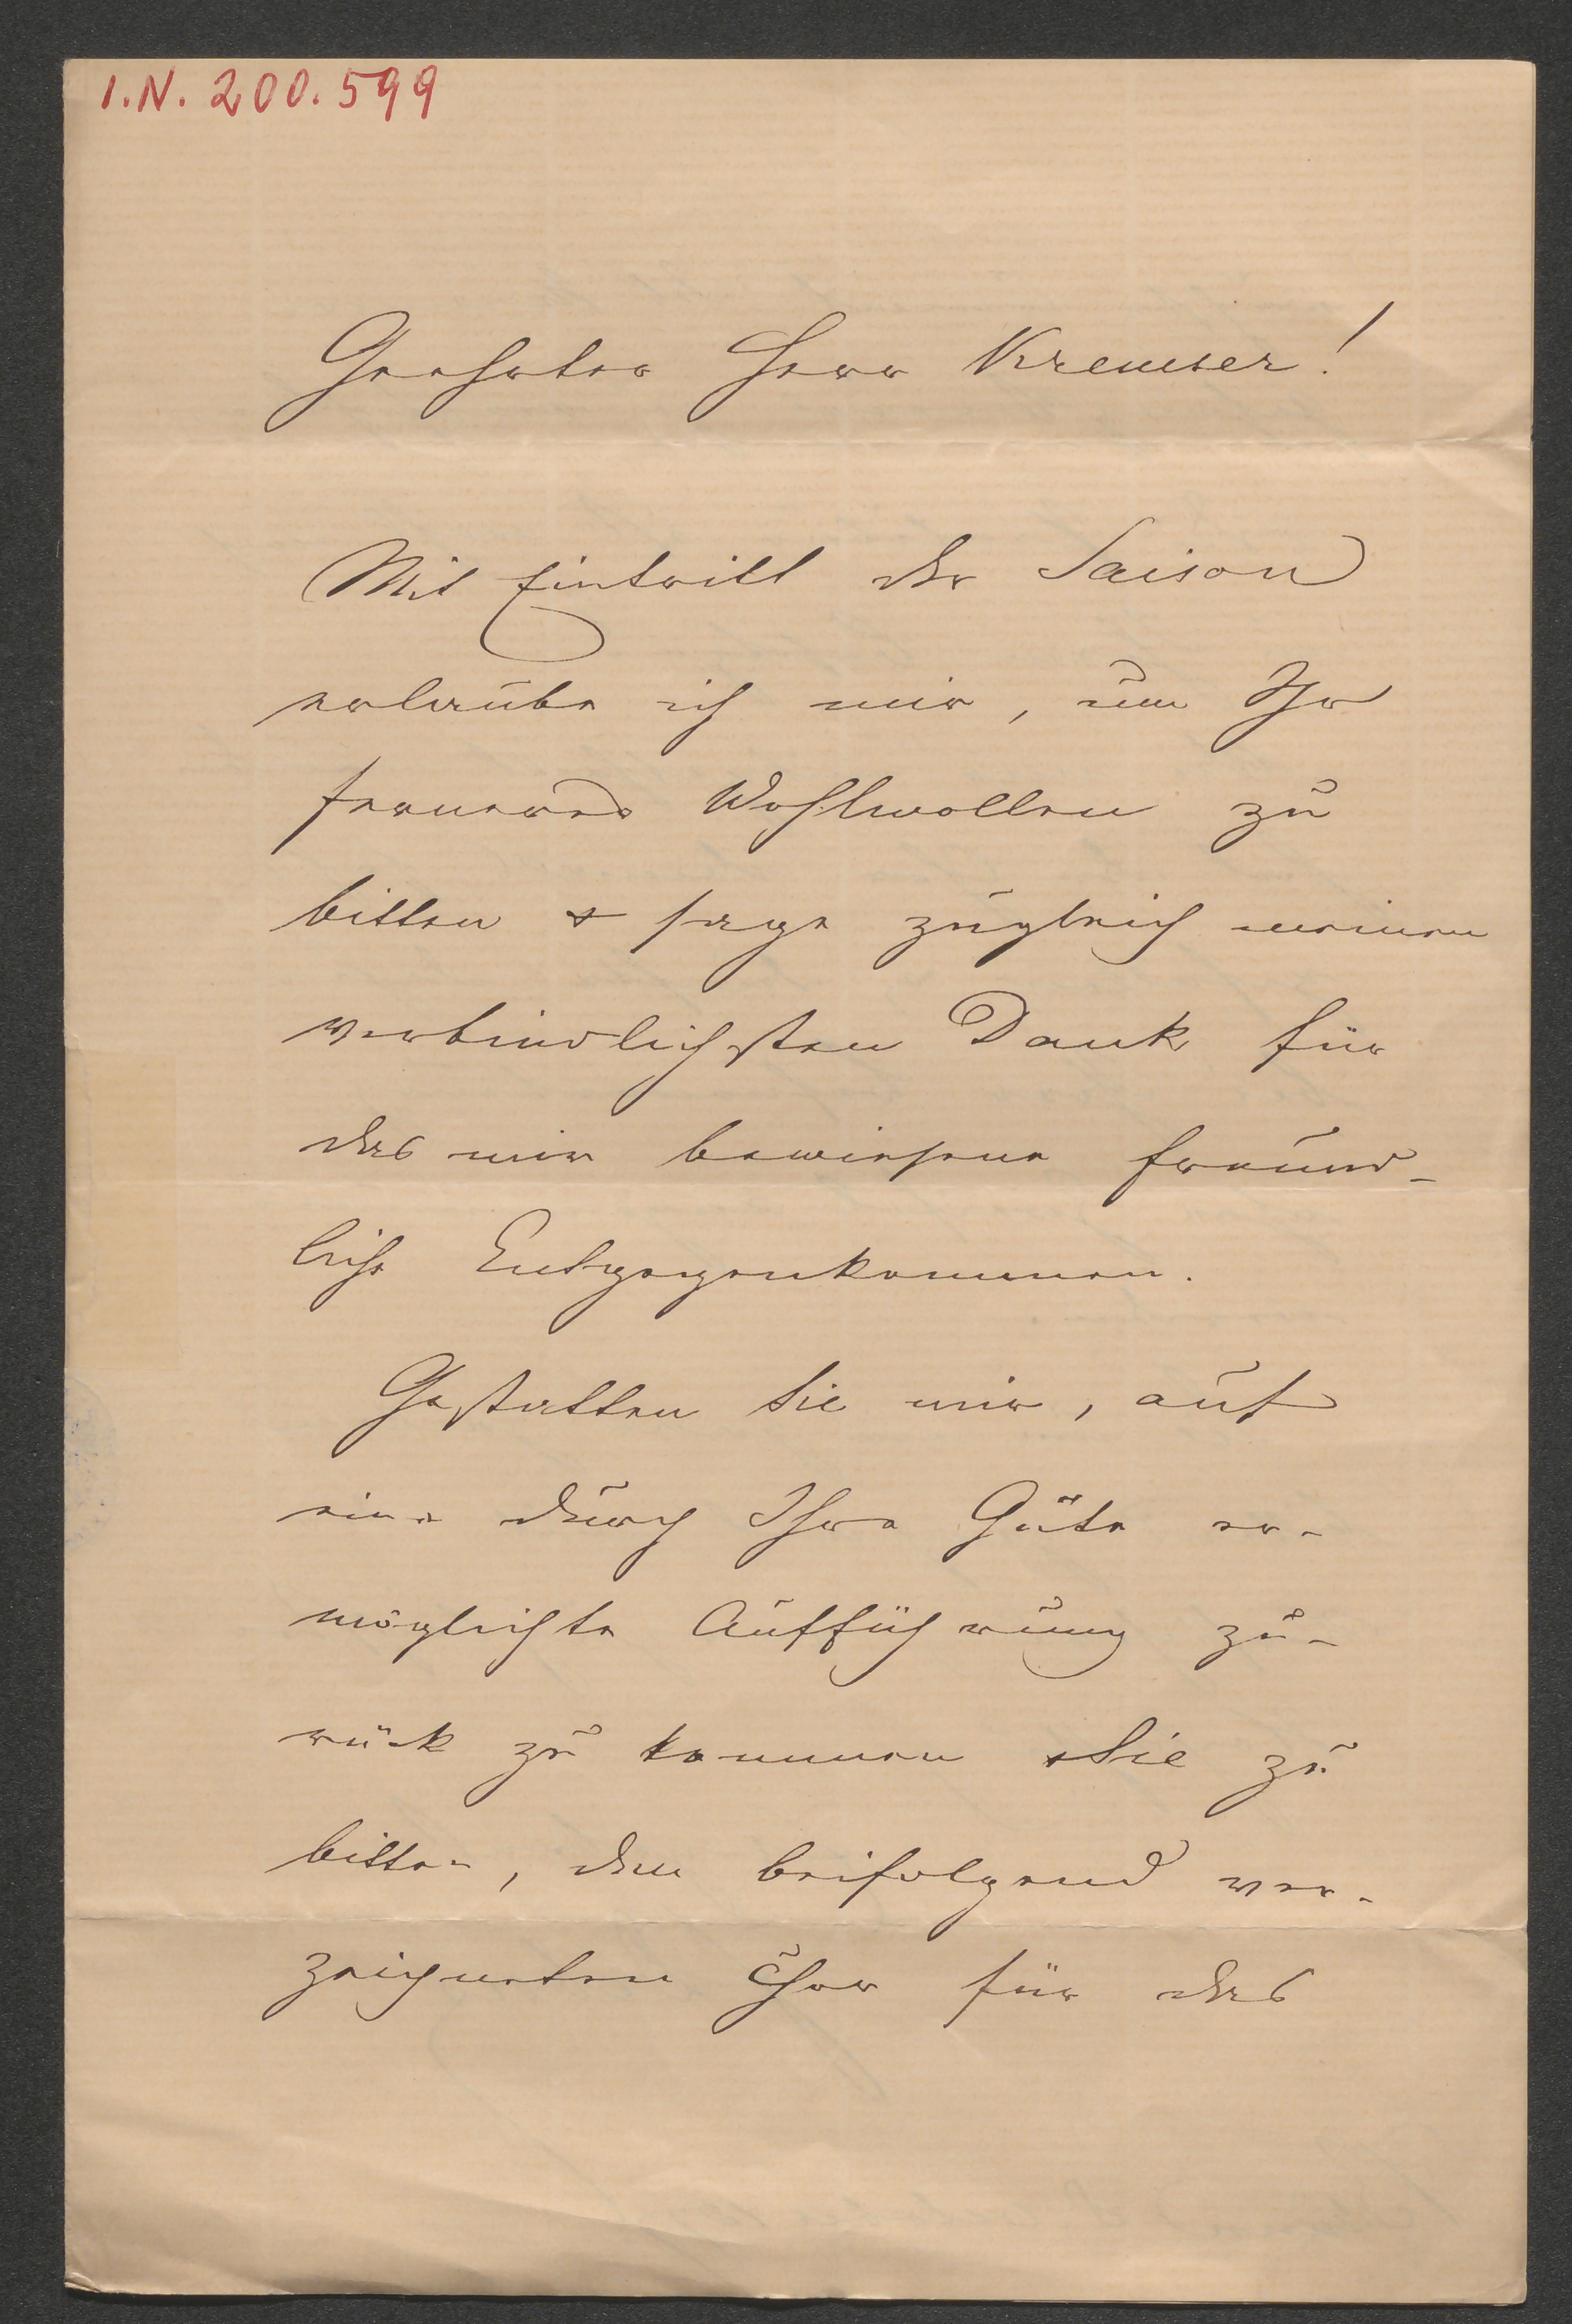 I.N. 200.599
Geehrter Herr Kremser!
Mit Eintritt der Saison
erlaube ich mir, um Ihr
ferneres Wohlwollen zu
bitten & sage zugleich meinen
verbindlichsten Dank für
das mir bewiesene freund-
liche Entgegenkommen.
Gestatten Sie mir, auf
eine durch Ihre Güte er-
möglichte Aufführung zu-
rück zu kommen & Sie zu
bitten, den beifolgend ver-
zeichneten Chor für das